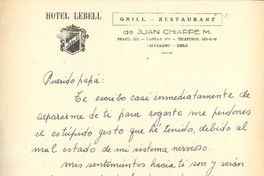 HOTEL LEBELL
GRILL - RESTAURANT
de JUAN CHIAPPE M.
VALPARAISO - CHILE
Querido papá:
Te escribo casi inmediatamente de
separarme de ti para rogarte me perdones
el estúpido gesto que hé tenido, debido al
mal estado de mi sistema nervioso.
Mis sentimientos hacia ti son y serán